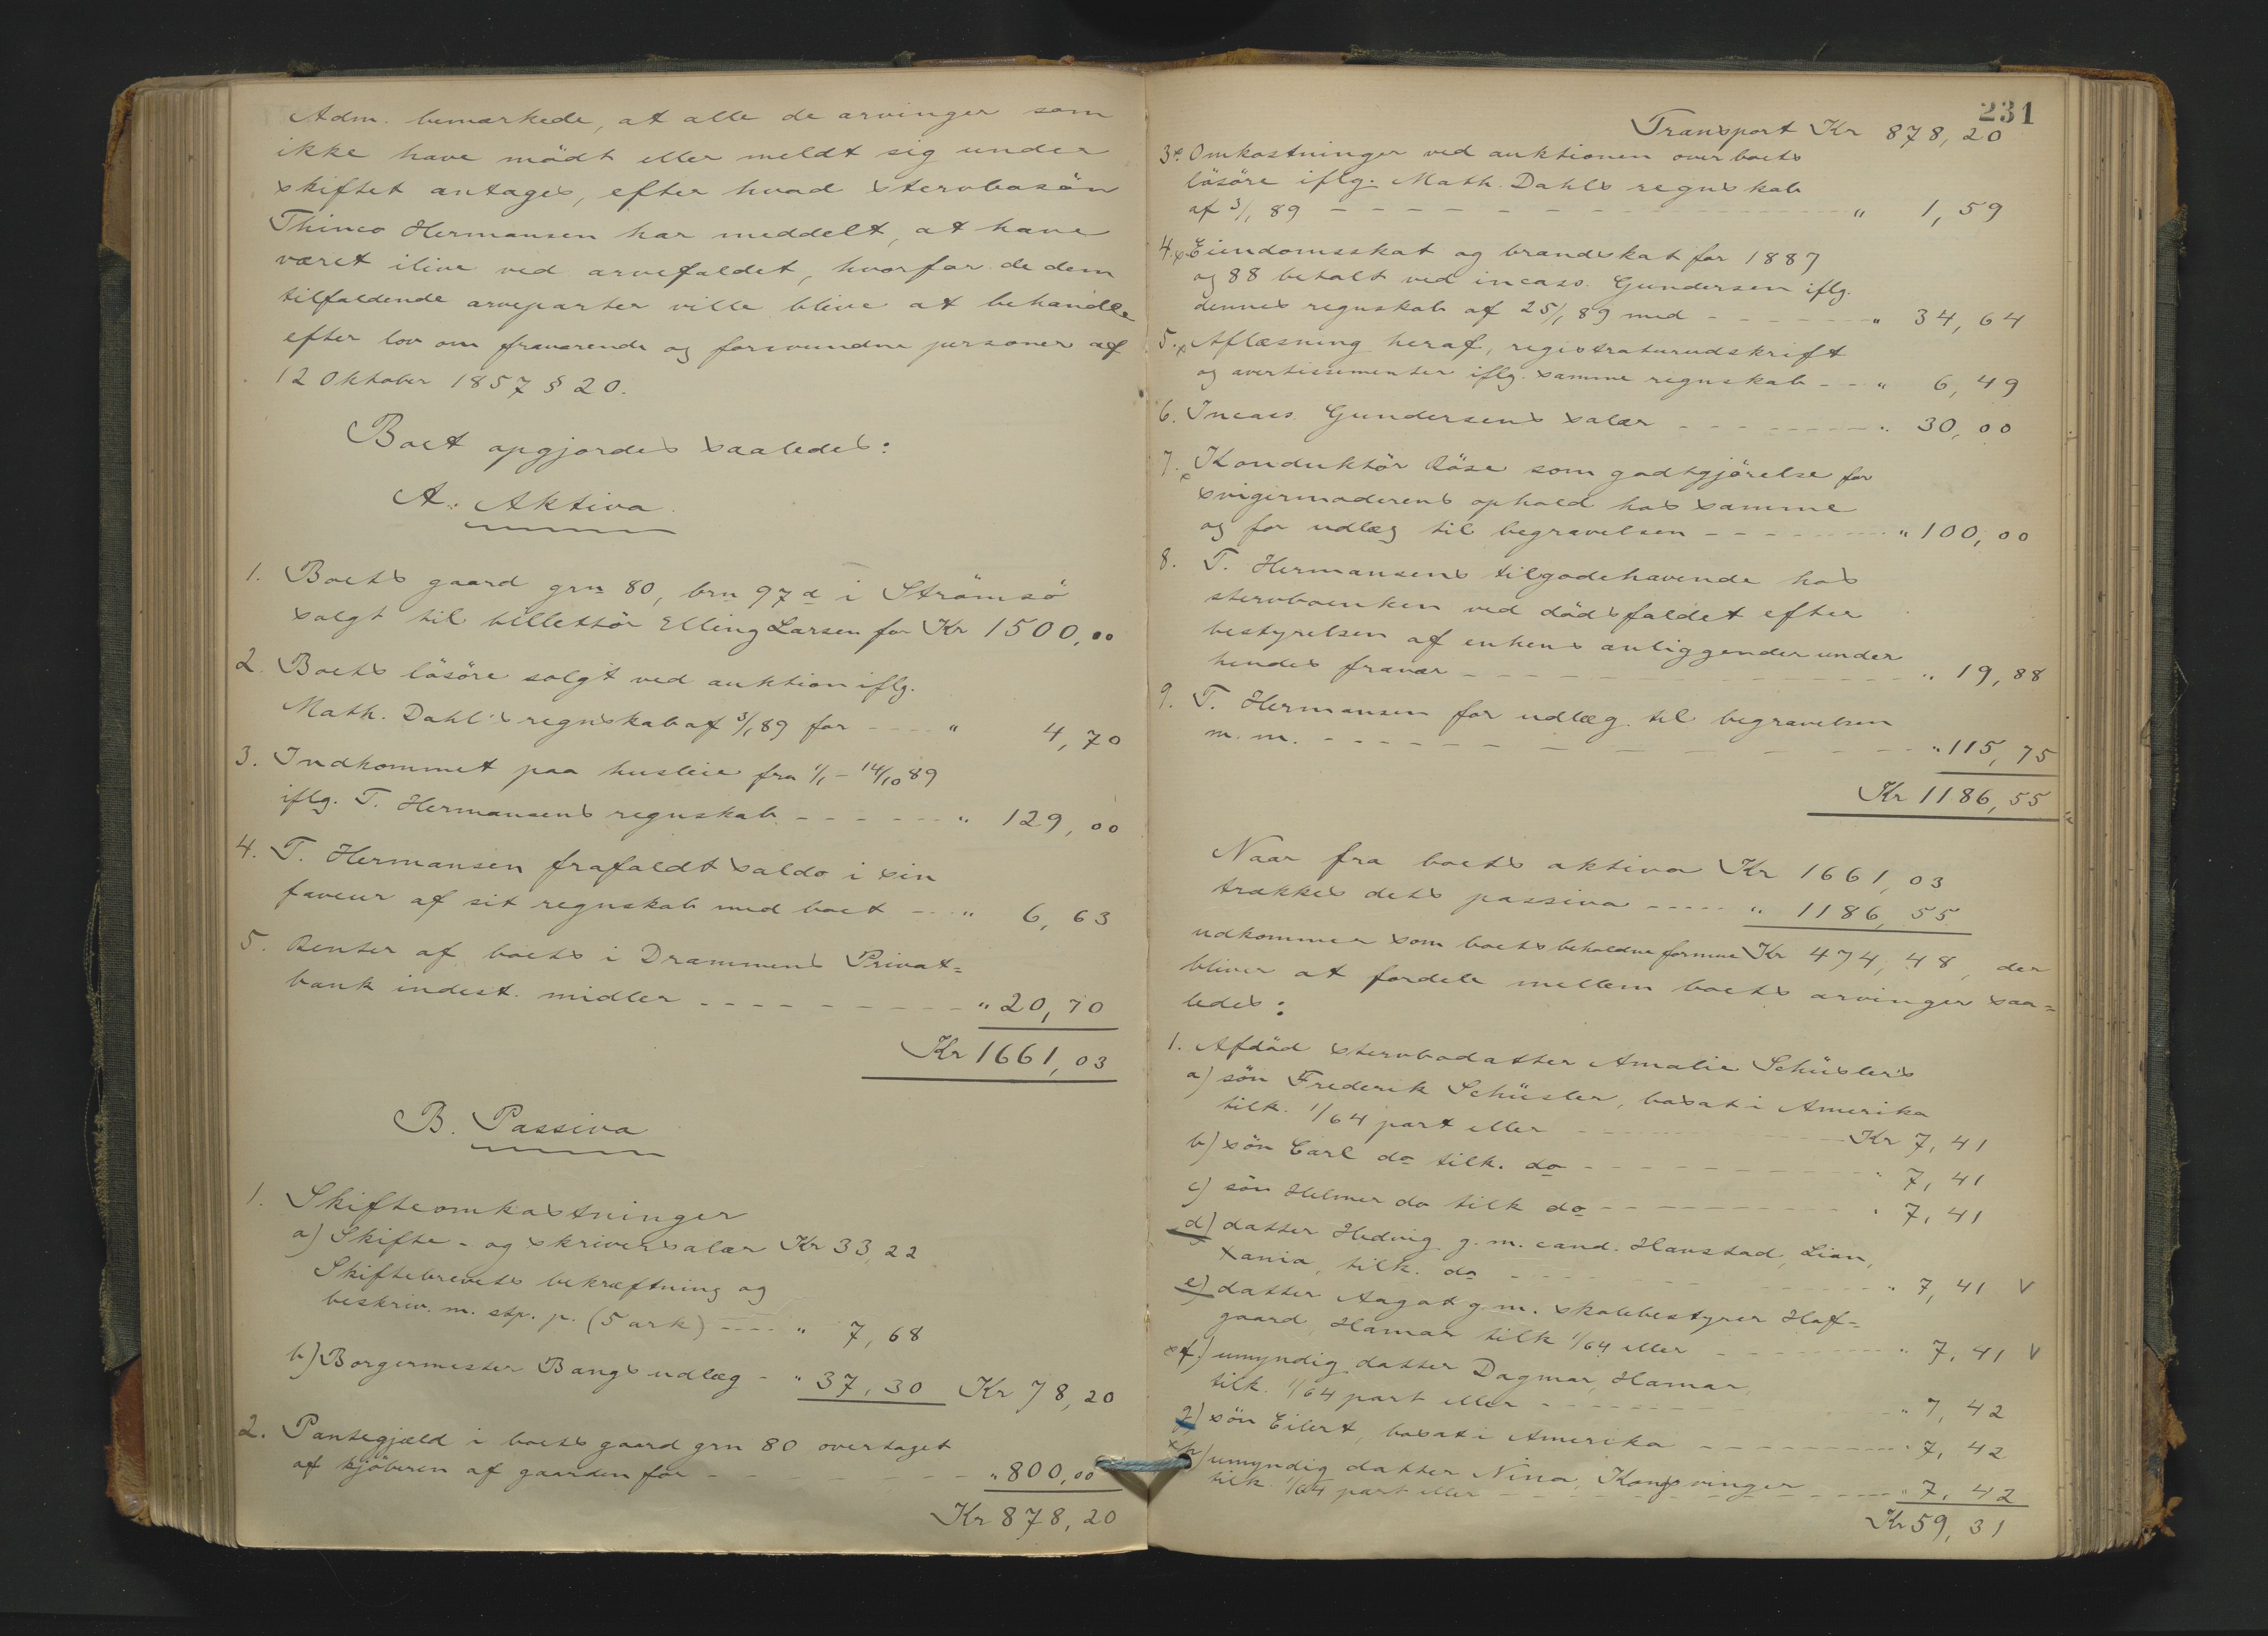 Adm. bemærkede, at alle de arvinger som
ikke have mödt eller meldt sig under
skiftet antages, efter hvad stervbosön
Thinco Hermansen har meddelt, at have
været ilive ved arvefaldet, hvorfor de dem
tilfaldende arveparter ville blive at behandle
efter lov om fraværende og forsvundne personer af
12 Oktober 1857 § 20.
Boet opgjordes saaledes:
A. Aktiva.
1. Boets gaard grn 80, brn 97 d i Strömsö
solgt til billettör Elling Larsen for Kr 1500,00
2. Boets lösöre solgt ved auktion iflg.
Math. Dahl's regnskab af 3/1 89 for - - - - " 4,70
3. Indkommet paa husleie fra 1/1 - 14/10 89
iflg. T. Hermansens regnskab - - - - - - " 129,00
4. T. Hermansen frafaldt saldo i sin
faveur af sit regnskab med boet - - - " 6,63
5. Renter af boets i Drammens Privat=
bank indest. midler - - - - - - - - - " 20,70
Kr 1661,03
B. Passiva
1. Skifteomkostninger
a) Skifte- og skriversalær Kr 33,22
Skiftebrevets bekræftning og
beskriv. m. stp. p. (5 ark) - - - - " 7,68
b) Borgermester Bangs udlæg - " 37,30 Kr 78,20
2. Pantegjæld i boets gaard grn 80 overtaget
af kjöberen af gaarden for - - - - - - - " 800,00
Kr 878,20
231
Transport Kr 878,20
3. Omkostninger ved auktionen over boets
lösöre iflg. Math. Dahls regnskab
af 3/1 89 - - - - - - - - - - - - - " 1,59
4. Eiendomsskat og brandskat for 1887
og 88 betalt ved incass. Gundersen iflg.
dennes regnskab af 25/1 89 med - - - - - - " 34,64
5. Aflæsning heraf, registraturudskrift
og avertissementer iflg. samme regnskab - - " 6,49
6. Incass. Gundersens salær - - - - - - - - " 30,00
7. Konduktör Röse som godtgjörelse for
svigermoderens ophold hos samme
og for udlæg til begravelsen - - - - - - - " 100,00
8. T. Hermansens tilgodehavende hos
stervboenken ved dödsfaldet efter
bestyrelsen af enkens anliggender under
hendes fravær - - - - - - - - - - - - - " 19,88
9. T. Hermansen for udlæg til begravelsen
m. m. - - - - - - - - - - - - - - - " 115,75
Kr 1186,55
Naar fra boets aktiva Kr 1661,03
trækkes dets passiva - - - - - " 1186,55
udkommer som boets beholdne formue Kr 474,48, der
bliver at fordele mellem boets arvinger saa=
ledes:
1. Afdöd stervbodatter Amalie Schüslers
a) sön Frederik Schüsler, bosat i Amerika
tilk. 1/64 part eller - - - - - - - - - - Kr 7,41
b) sön Carl do tilk. do - - - - - - - - - " 7,41
c) sön Helmer do tilk do - - - - - - - - - " 7,41
d) datter Hedvig g. m. cand. Hanstad, Lian,
Xania, tilk. do - - - - - - - - - - " 7,41 V
e) datter Aagot g. m. skolebestyrer Hof=
gaard, Hamar tilk 1/64 eller - - - - - - - " 7,41 V
x f) umyndig datter Dagmar, Hamar
tilk. 1/64 part eller - - - - - - - - - - " 7,42
g) sön Eilert, bosat i Amerika - - - - - - - " 7,42
x h) umyndig datter Nina, Kongsvinger
tilk. 1/64 part eller - - - - - - - - - - " 7,42
Kr 59,31